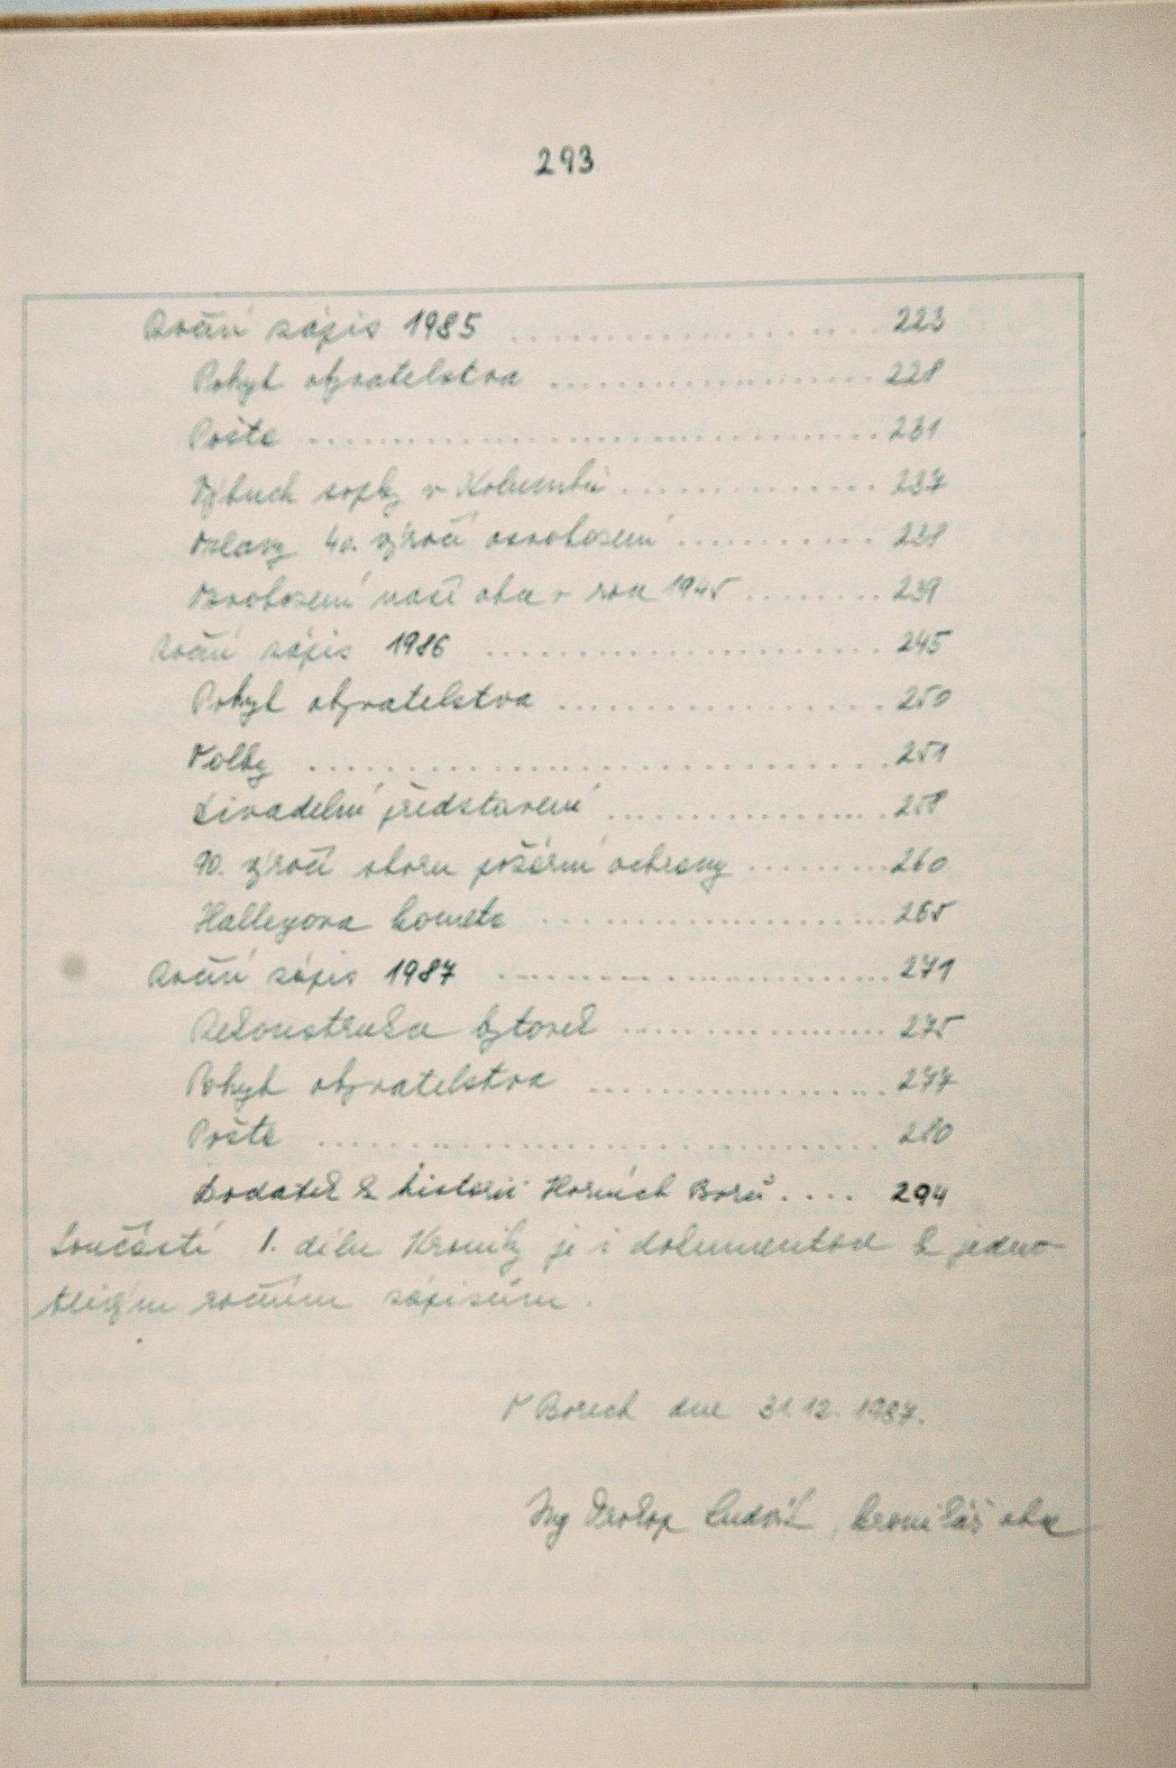 293
Roční zápis 1985 ........................ 223
Pohyb obyvatelstva ........................ 228
Pošta ........................ 231
Výbuch sopky v Kolumbii ........................ 237
Oslavy 40. výročí osvobození ........................ 238
Osvobození naší obce v roce 1945 ........................ 239
Roční zápis 1986 ........................ 245
Pohyb obyvatelstva ........................ 250
Volby ........................ 251
Divadelní představení ........................ 258
90. výročí sboru požární ochrany ........................ 260
Halleyova kometa ........................ 265
Roční zápis 1987 ........................ 271
Rekonstrukce bytovek ........................ 275
Pohyb obyvatelstva ........................ 277
Pošta ........................ 280
Dodatek k historii Horních Borů .... 294
Součástí 1. dílu Kroniky je i dokumentace k jedno-
tlivým ročním zápisům.
V Borech dne 31.12. 1987.
Ing Prokop Luděk, kronikář obce